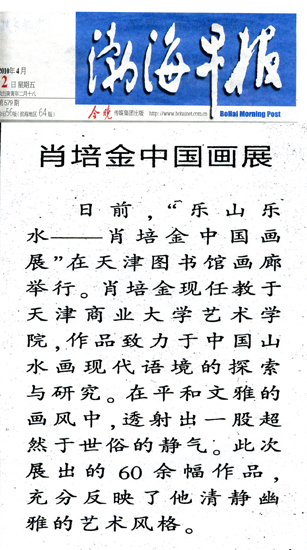 2010年4月
2日 星期五
渤海早报
传媒集团出版
BoHai Morning Post
肖培金中国画展
日前，“乐山乐
水——肖培金中国画
展”在天津图书馆画廊
举行。肖培金现任教于
天津商业大学艺术学
院，作品致力于中国山
水画现代语境的探索
与研究。在平和文雅的
画风中，透射出一股超
然于世俗的静气。此次
展出的60余幅作品，
充分反映了他清静幽
雅的艺术风格。